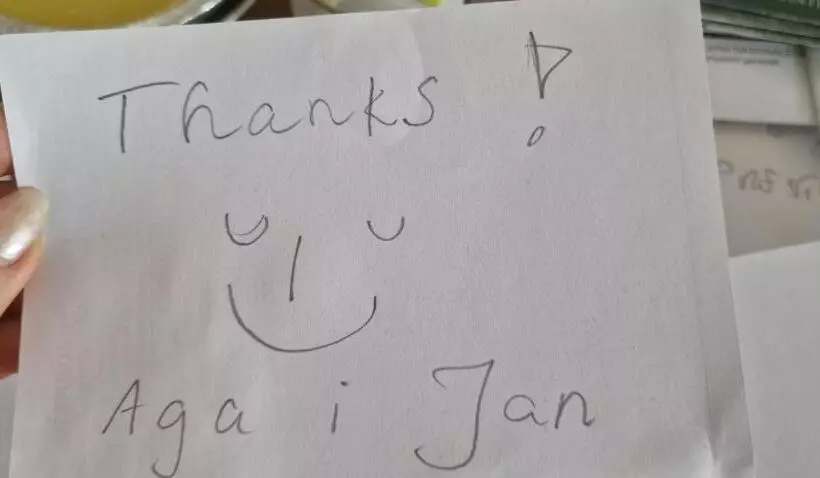 Thanks !
Aga i Jan